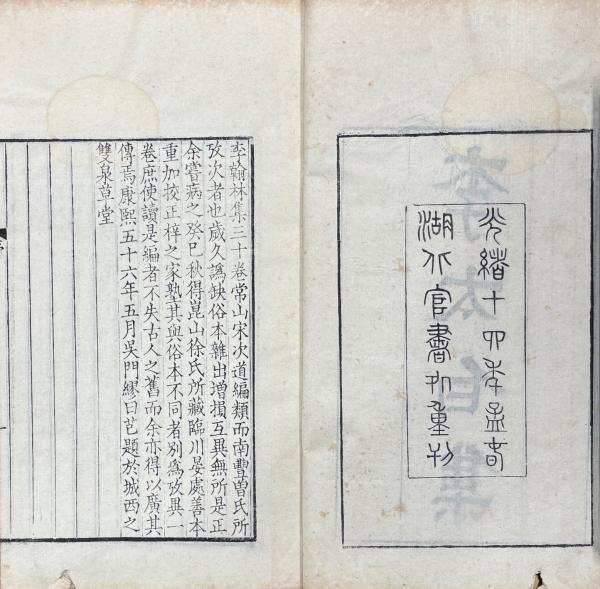 光緒十四年孟春
湖北官書處重刊
李太白集
李翰林集三十卷常山宋次道編類而南豐曾氏所
攷次者也歲久譌缺俗本雜出增損互異無所是正
余嘗病之癸巳秋得崑山徐氏所藏臨川晏處善本
重加挍正梓之家塾其與俗本不同者別為攷異一
卷庶使讀是編者不失古人之舊而余亦得以廣其
傳焉康熙五十六年五月吳門繆曰芑題於城西之
雙泉草堂